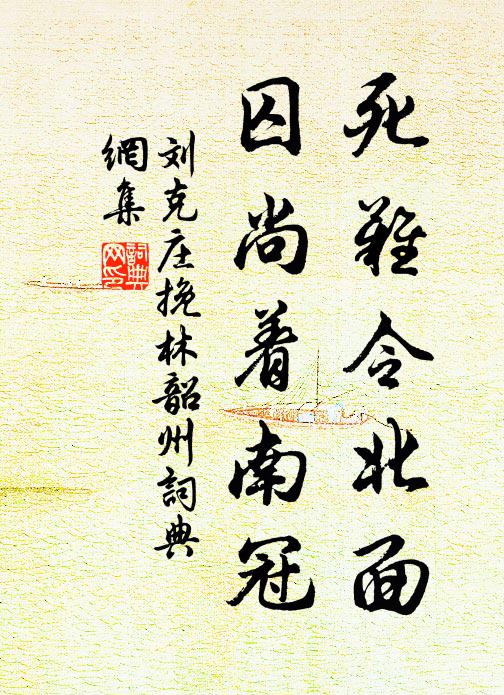 死难令北面
囚尚着南冠
刘克庄挽林韶州詞典
網集
詞典
网印